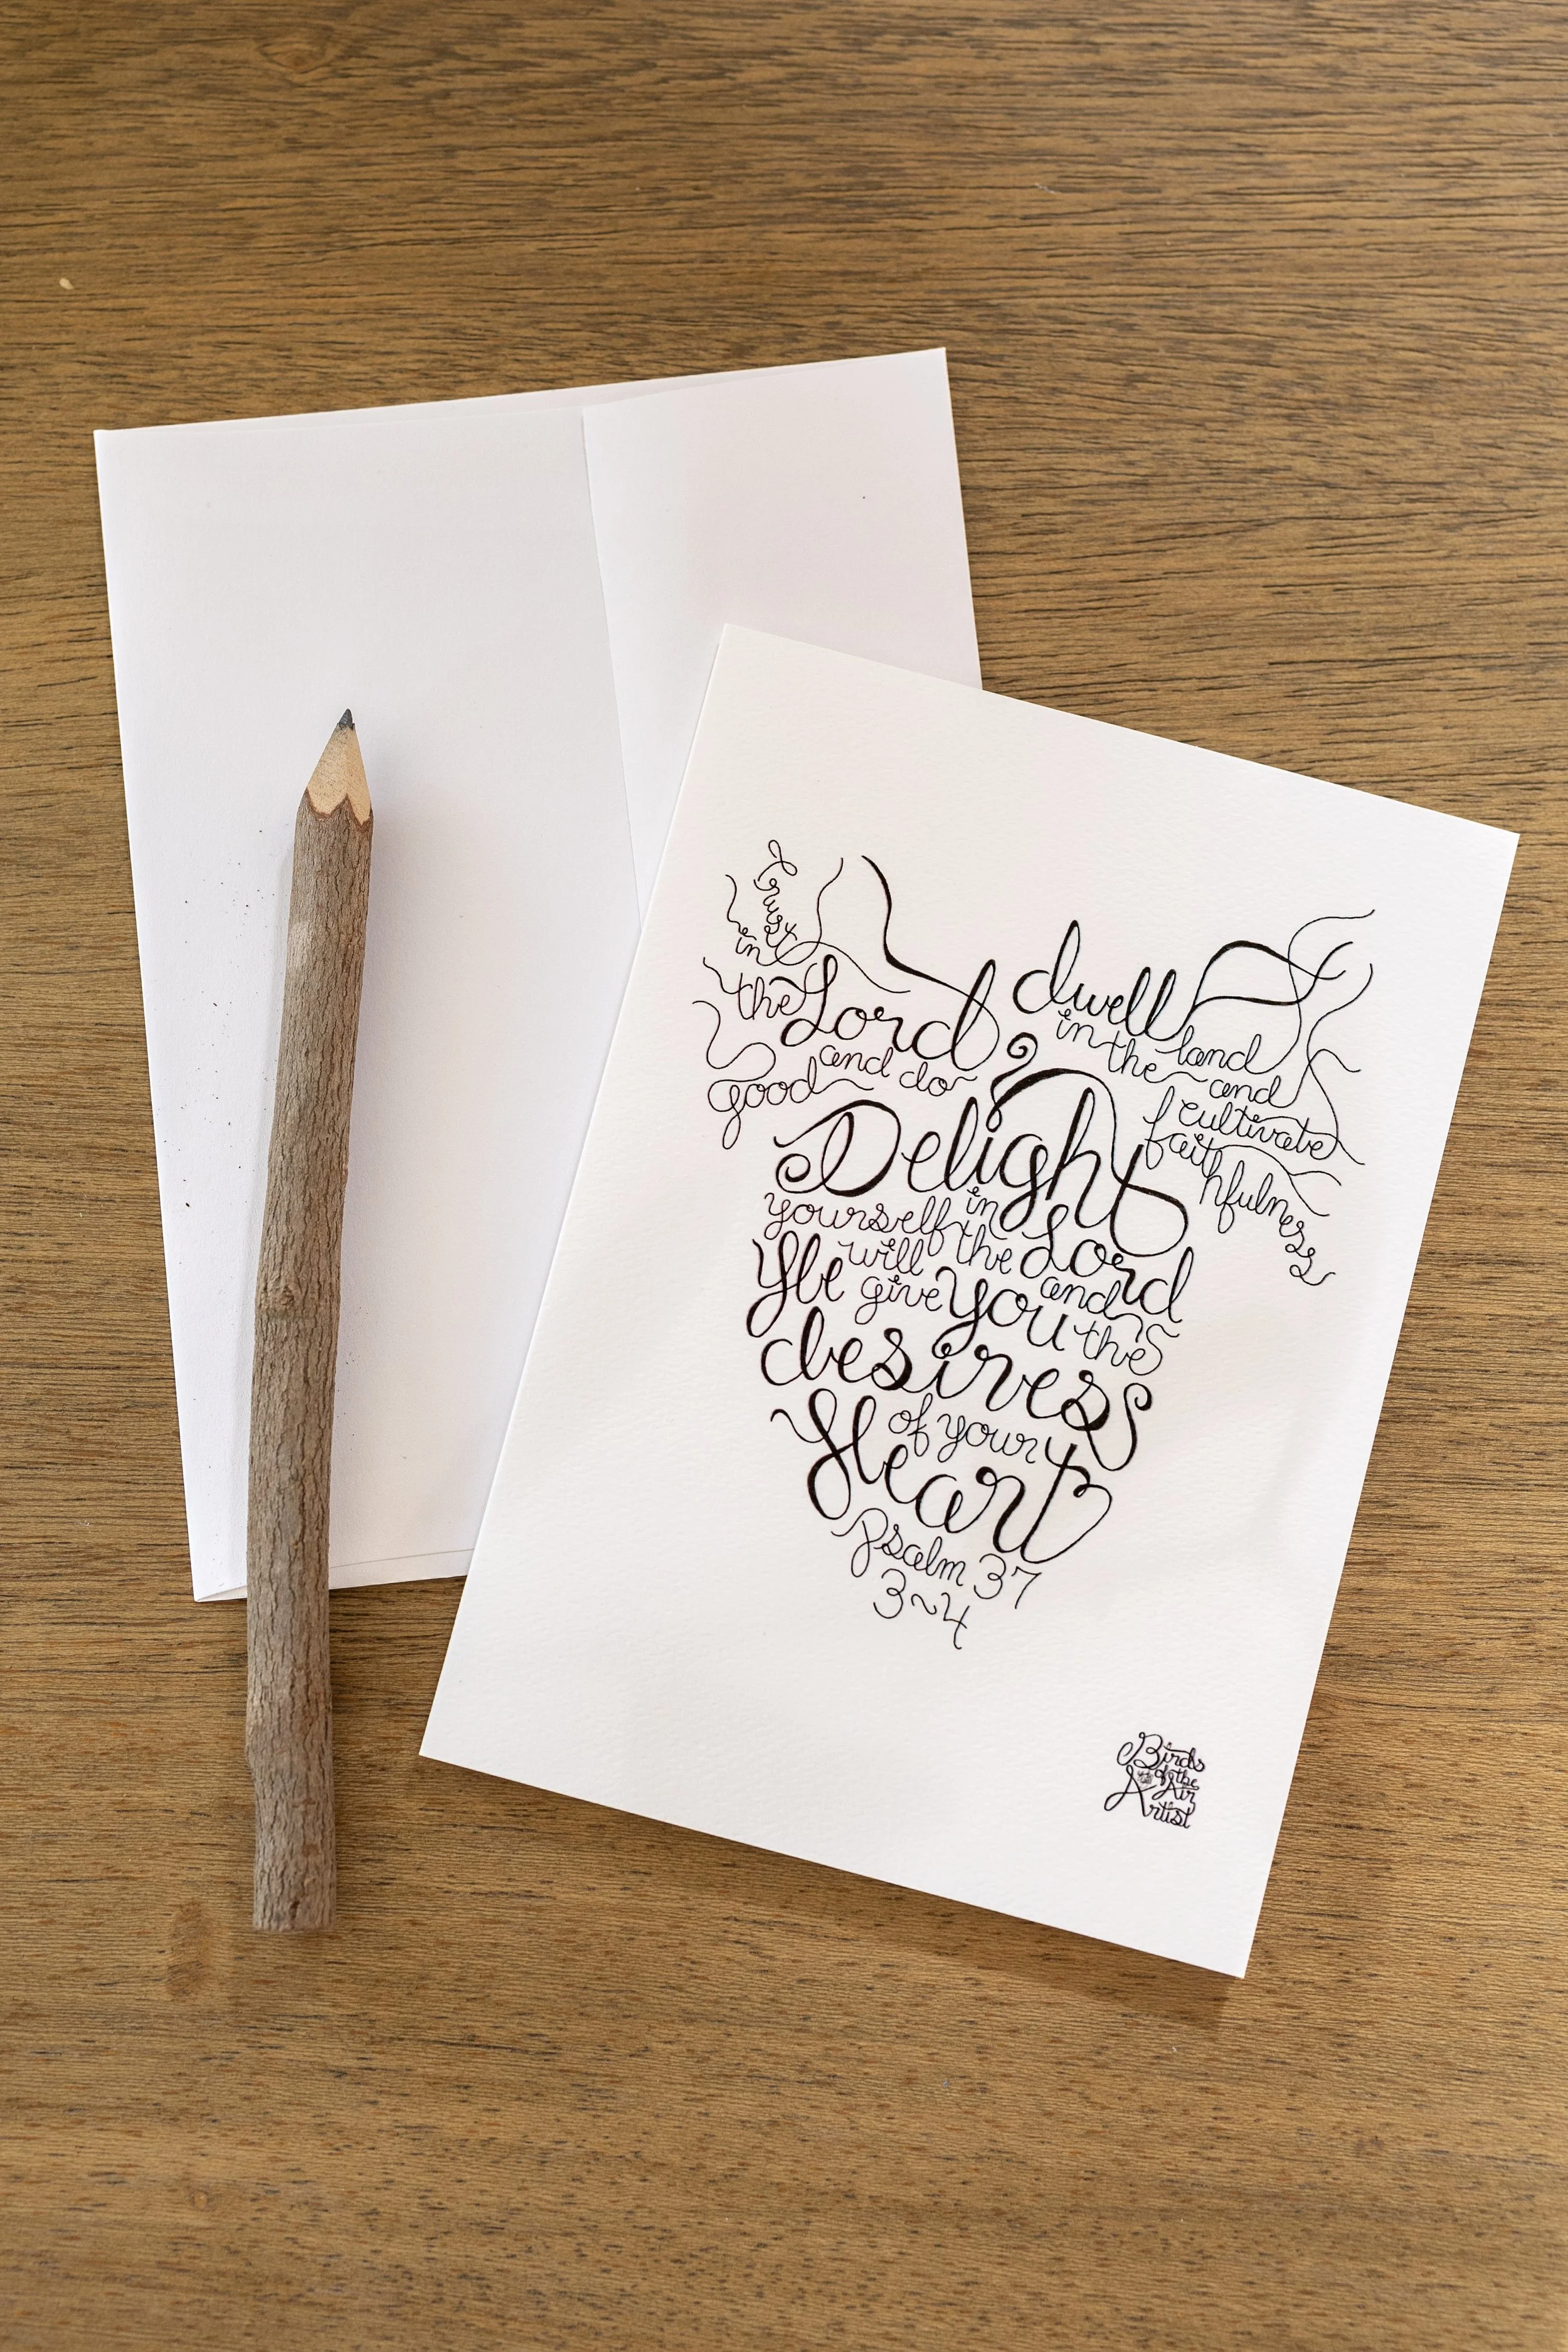 trust
in
the Lord
and do
good
dwell
in the land
and
cultivate
faithfulness
Delight
yourself in
the Lord
and
He will
give you the
desires
of your
Heart
Psalm 37
3~4
Birds
of the
Air
Artist